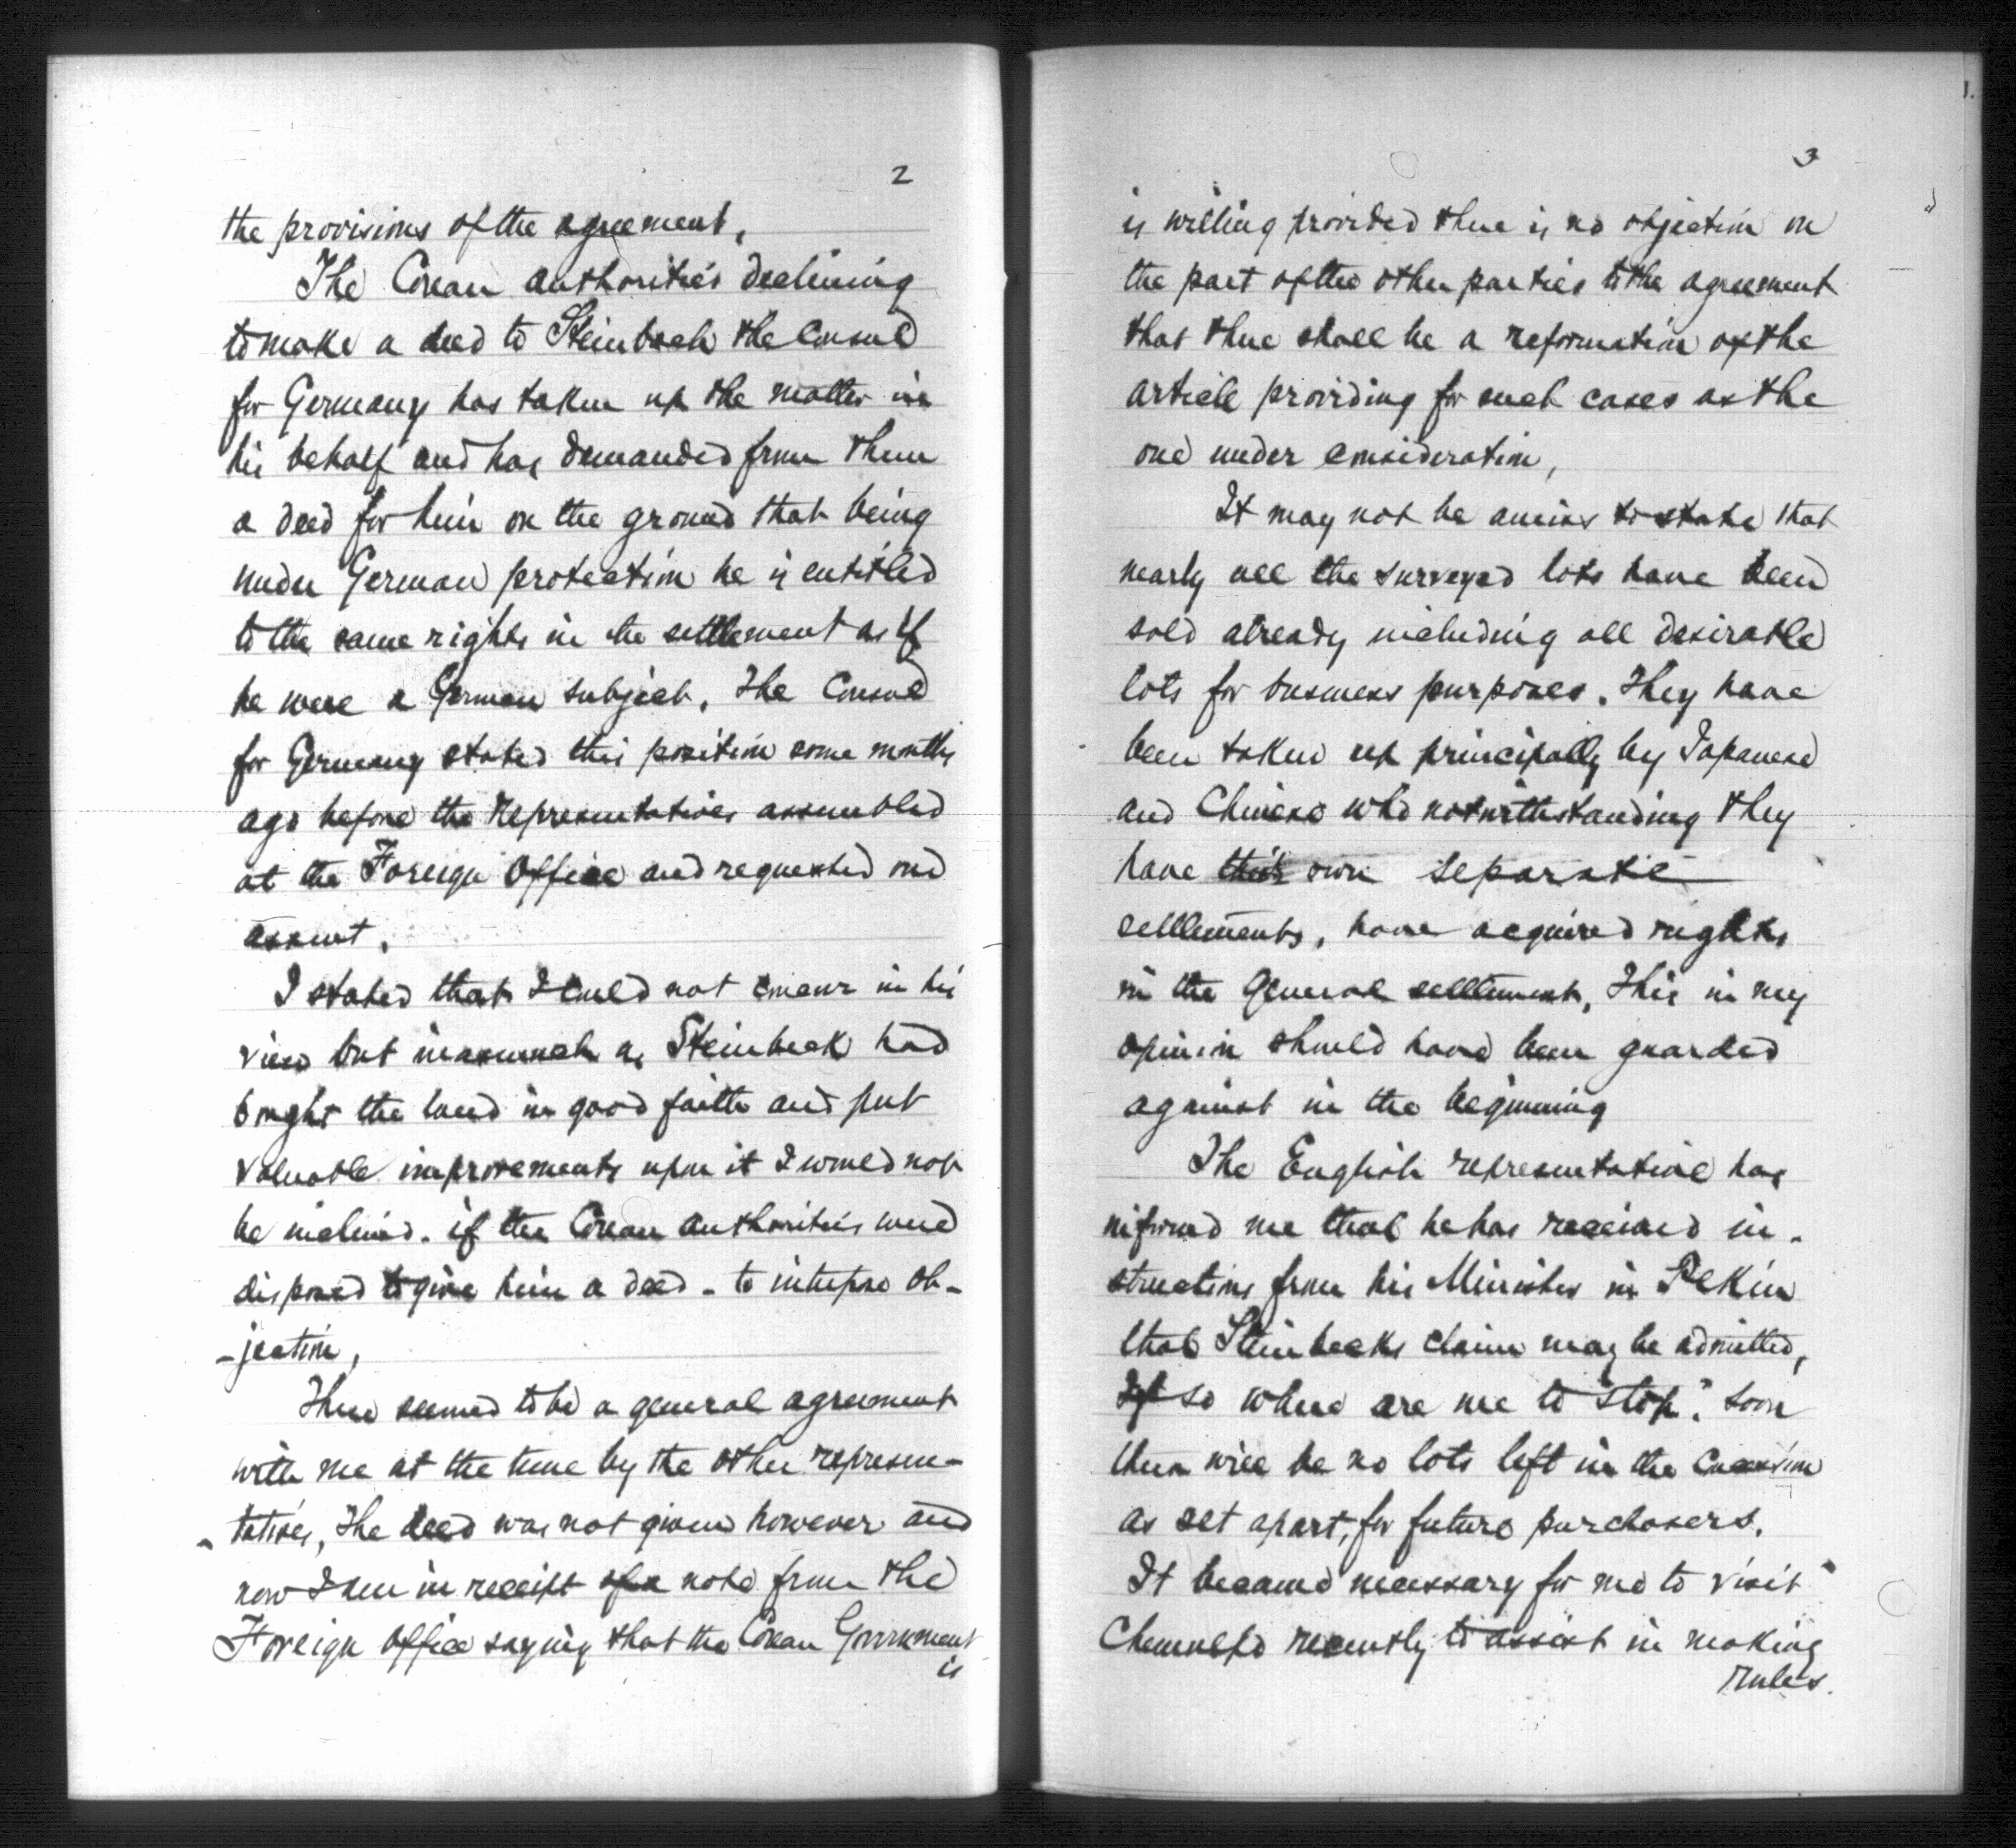 2
the provisions of the agreement.
The Corean authorities declining
to make a deed to Steinbeck the Consul
for Germany has taken up the matter in
his behalf and has demanded from them
a deed for him on the ground that being
under German protection he is entitled
to the same rights in the settlement as if
he were a German subject. The Consul
for Germany stated this position some months
ago before the representatives assembled
at the Foreign Office and requested our
assent.
I stated that I could not concur in his
view but inasmuch as Steinbeck had
bought the land in good faith and put
valuable improvements upon it I would not
be inclined - if the Corean authorities were
disposed to give him a deed - to interpose ob-
-jection,
There seemed to be a general agreement
with me at the time by the other represen-
tatives, The deed was not given however and
now I am in receipt of a note from the
Foreign Office saying that the Corean Government
is
3
is willing provided there is no objection on
the part of the other parties to the agreement
that there shall be a reformation of the
article providing for such cases as the
one under consideration,
It may not be amiss to state that
nearly all the surveyed lots have been
sold already including all desirable
lots for business purposes. They have
been taken up principally by Japanese
and Chinese who notwithstanding they
have their own separate
settlements, have acquired rights
in the General settlement, This in my
opinion should have been guarded
against in the beginning
The English representative has
informed me that he has received in-
structions from his Minister in Pekin
that Steinbecks claim may be admitted,
If so where are we to stop? Soon
there will be no lots left in the Concession
as set apart, for future purchasers.
It became necessary for me to visit
Chemulpo recently to assist in making
rules.